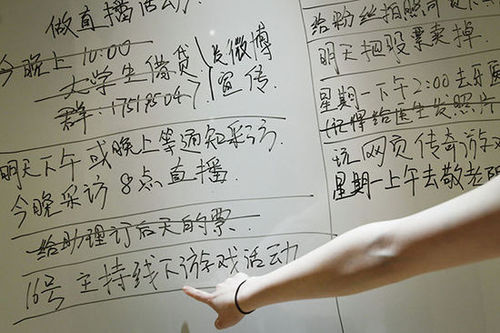 做直播活动
今晚上 10:00
大学生借贷
群:1751850
发微博
宣传
明天下午或晚上等通知采访
今晚采访 8点直播
给助理订后天的票
16号 主持线下游戏活动
给粉丝拍照
明天把股票卖掉
星期一下午2:00去牙医
(记得给医生发照片
玩网页传奇游戏
星期一上午去敬老院